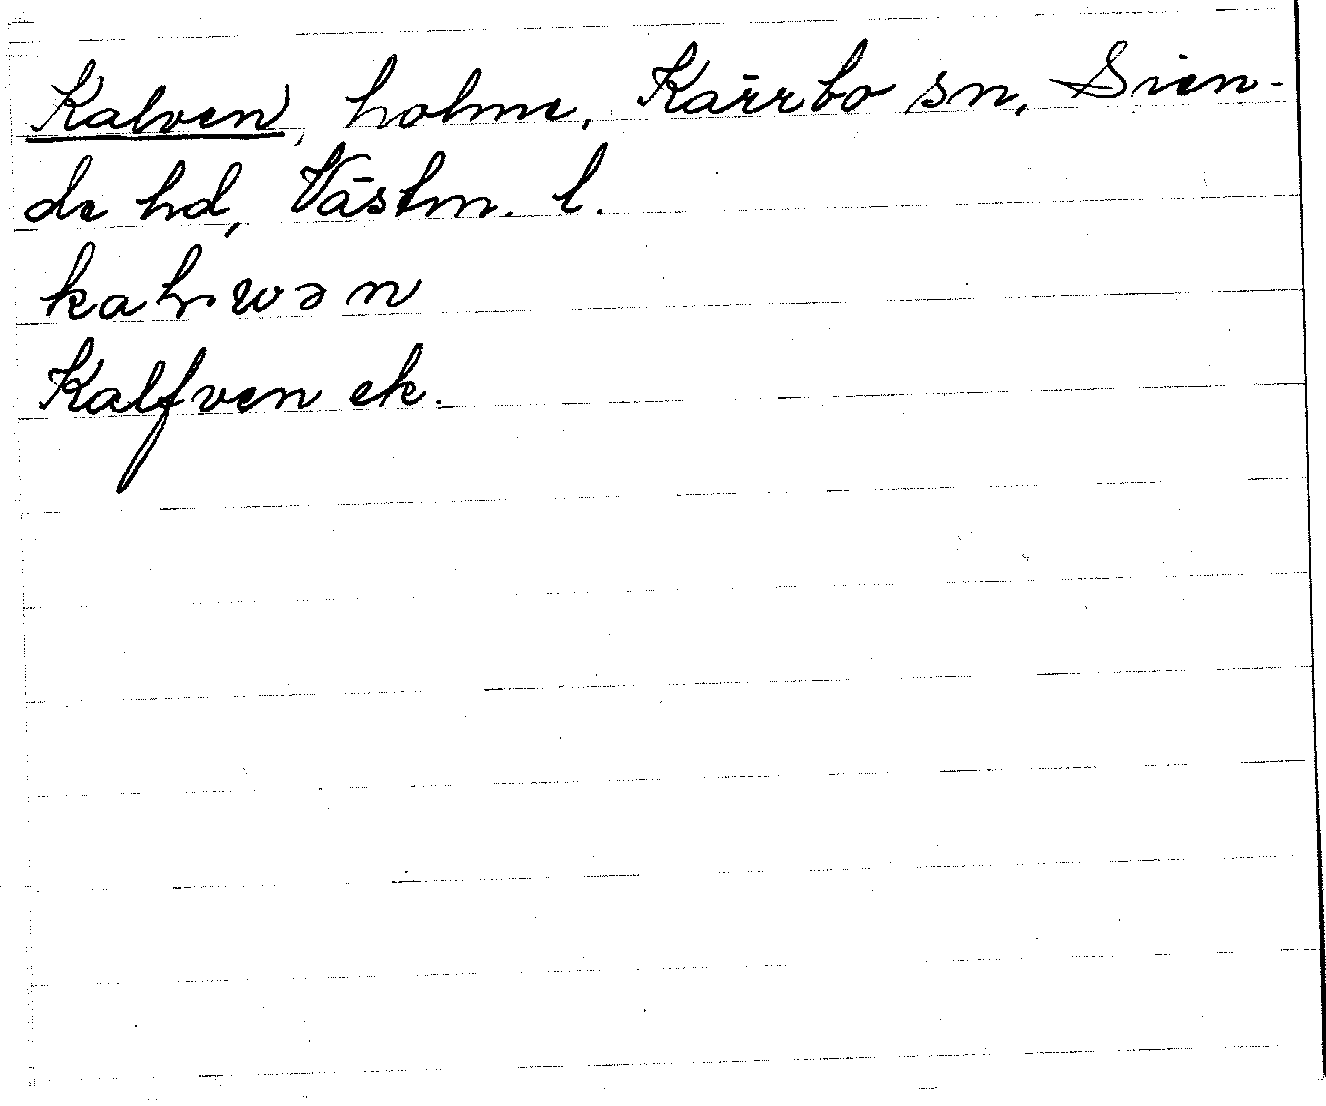 Kalven, holme, Kärrbo sn, Sien-
de hd, Västm. l.
kaḷwən
Kalfven ek.